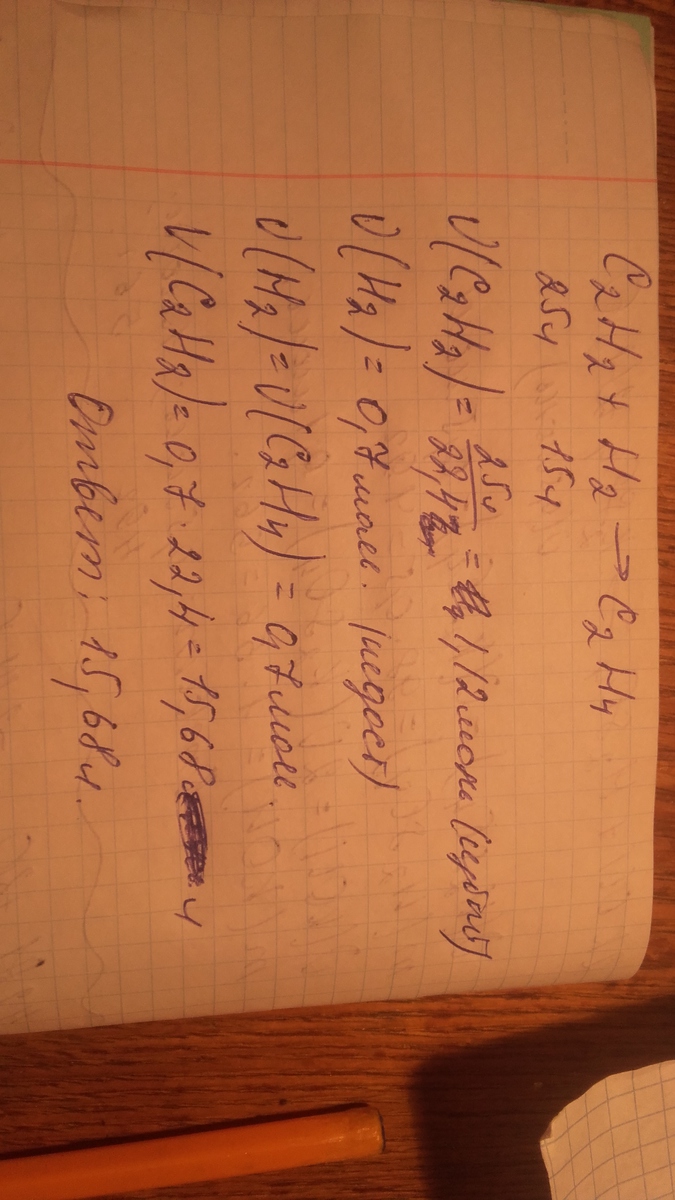 C2H2 + H2 → C2H4
25л 15л
ν(C2H2) = 25л/22,4 = 1,12 моль (избыт)
ν(H2) = 0,7 моль. (недост)
ν(H2) = ν(C2H4) = 0,7 моль.
V(C2H2) = 0,7 · 22,4 = 15,68 л
Ответ: 15,68 л.